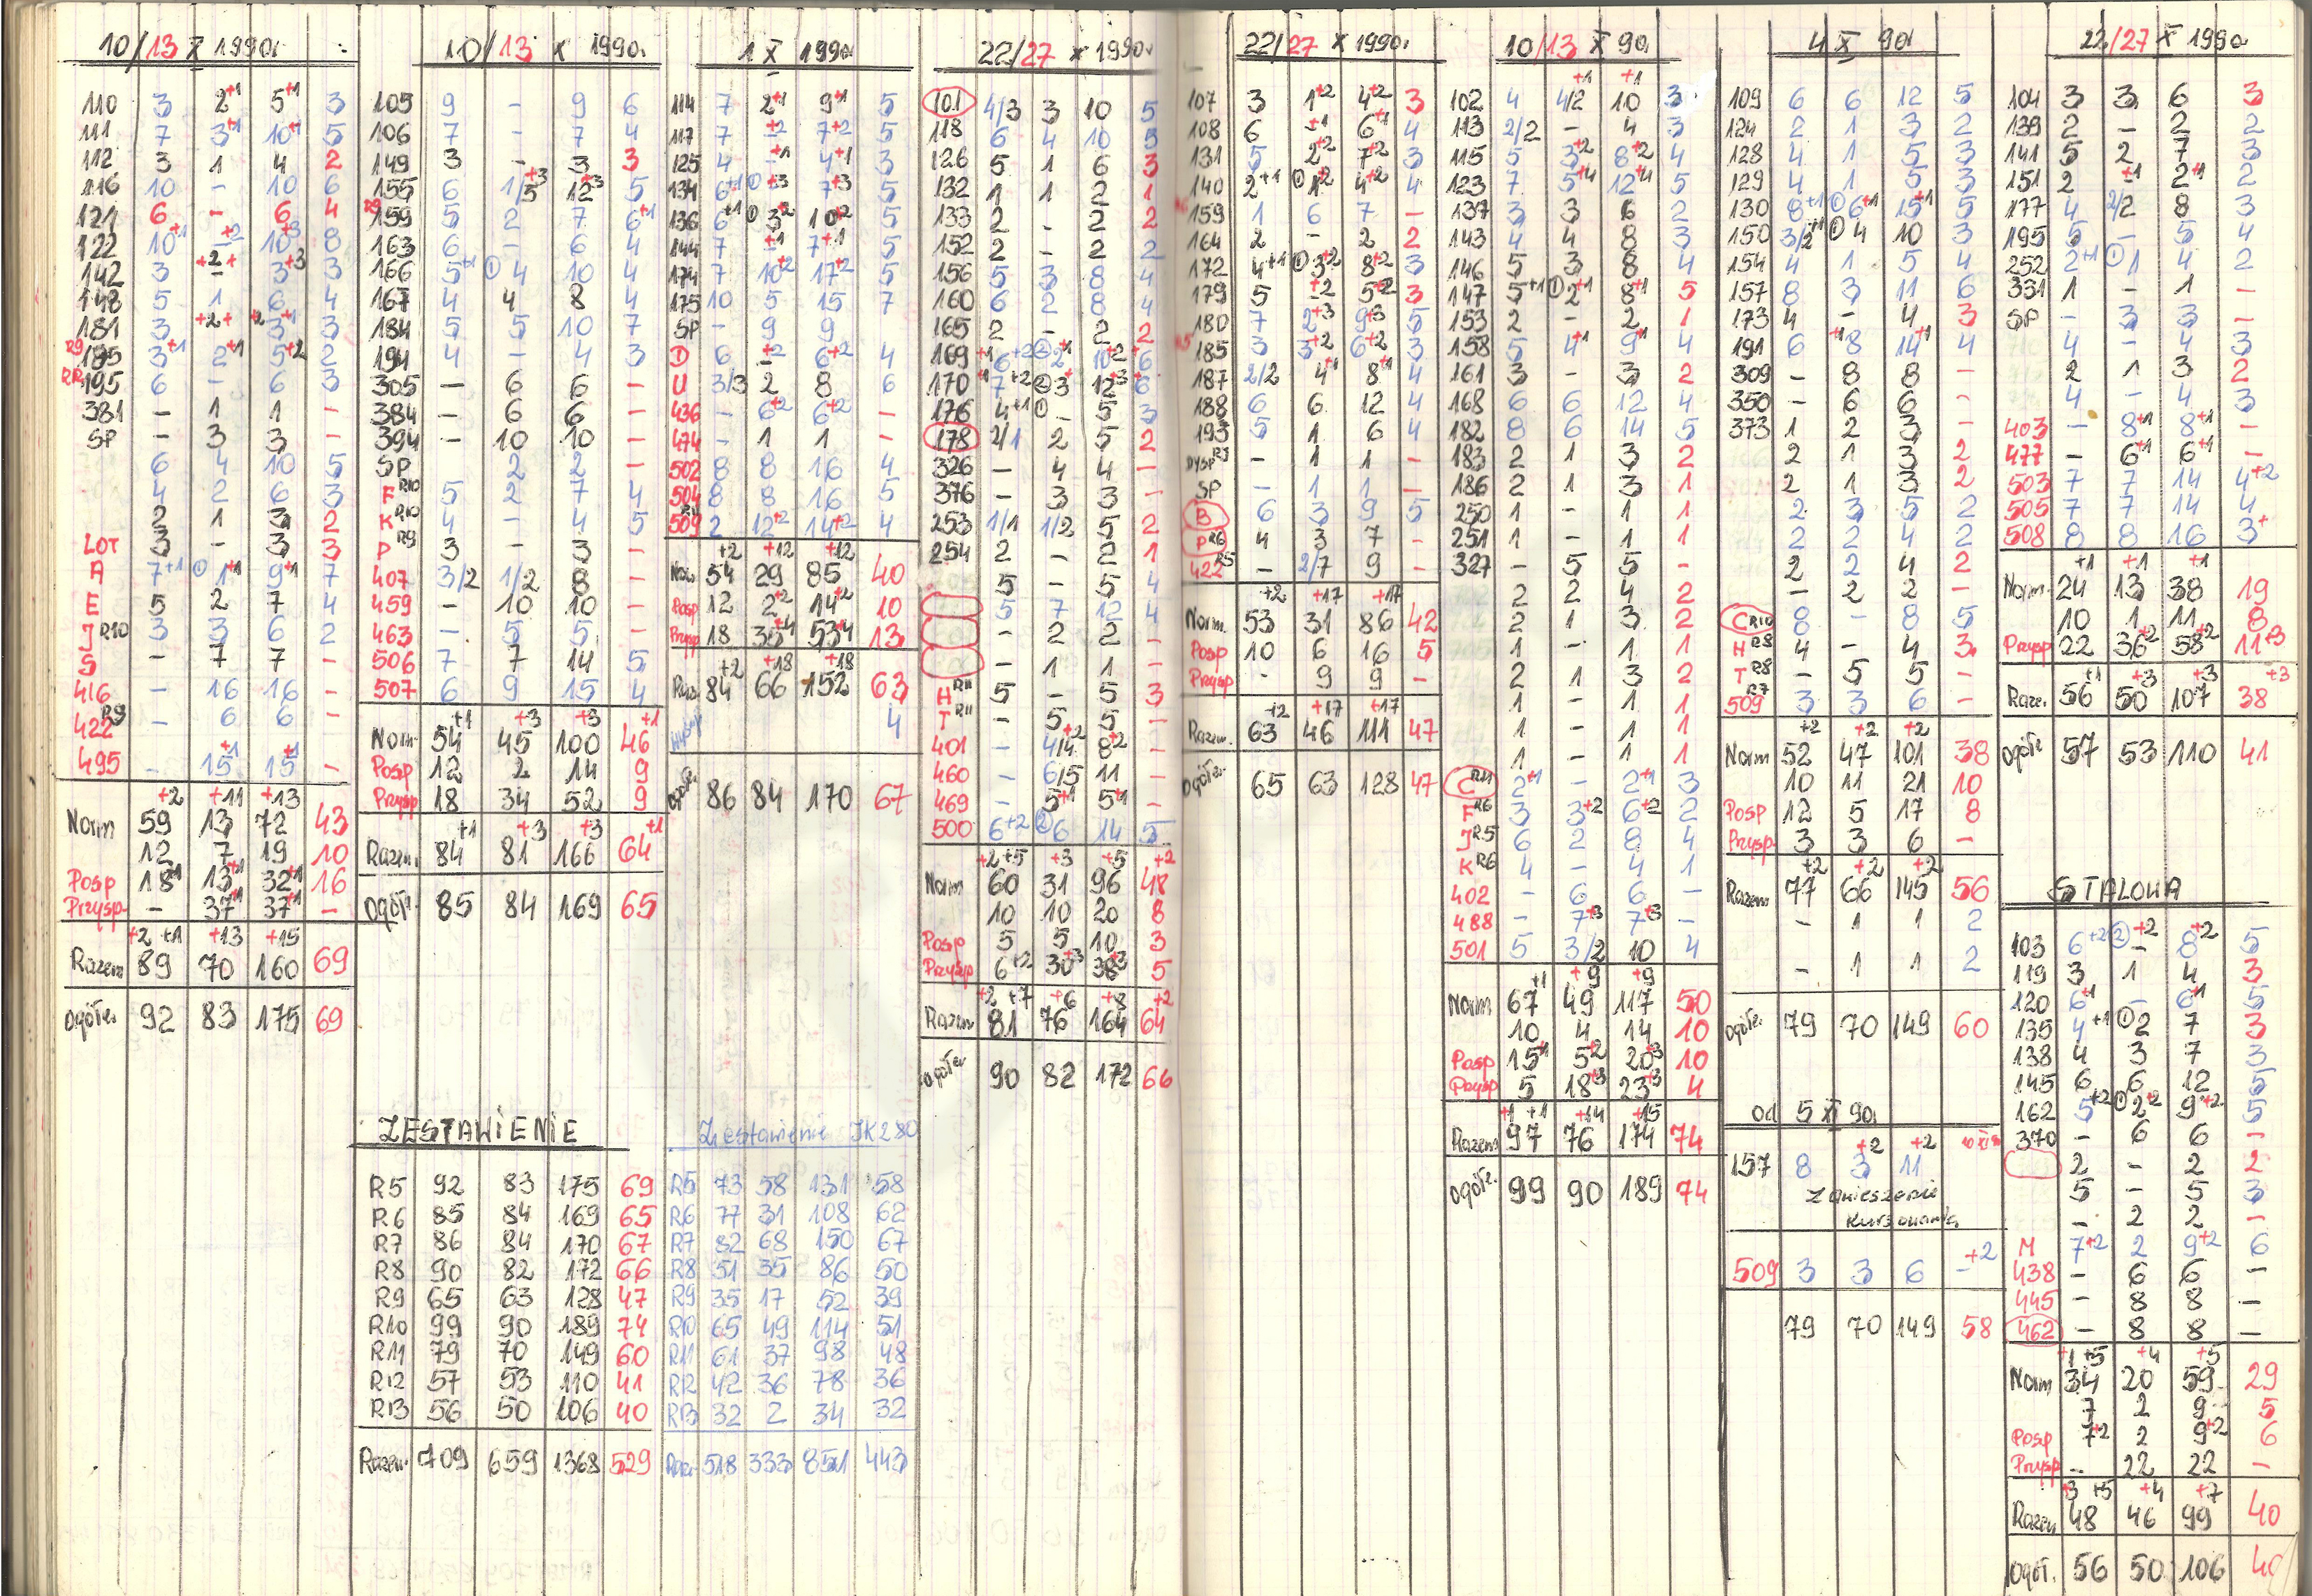 10/13 X 1990r.
110 3 2+1 5+1 3
111 7 3+1 10+1 5
112 3 1 4 2
116 10 - 10 6
121 6 - 6 4
122 10+1 -+2 10+3 8
142 3 -+2+ 3+3 3
148 5 1 6 4
181 3 +2+ +2 3+1 3
R9 185 3+1 2+1 5+2 2
195 6 - 6 3
381 - 1 1 -
SP - 3 3 -
6 4 10 5
4 2 6 3
2 1 3 2
LOT 3 - 3 3
A 7+1 ① 1+1 9+1 7
E 5 2 7 4
J R10 3 3 6 2
S - 7 7 -
416 - 16 16 -
422 R9 - 6 6 -
495 - 15+1 15+1 -
+2 +11 +13
Norm 59 13 72 43
12 7 19 10
Posp 18+1 13+1 32+1 16
Przysp - 37+1 37+1 -
+2 +1 +13 +15
Razem 89 70 160 69
Ogółe. 92 83 175 69
10/13 X 1990r.
105 9 - 9 6
106 7 - 7 4
149 3 - 3 3
155 6 1/5+3 12+3 5
R9 159 5 2 7 6+1
163 6 - 6 4
166 5+1 ① 4 10 4
167 4 4 8 4
184 5 5 10 7
194 4 - 4 3
305 - 6 6 -
384 - 6 6 -
394 - 10 10 -
SP 2 2 -
F R10 5 2 7 4
K R10 4 - 4 5
P R9 3 - 3 -
407 3/2 1/2 8 -
459 - 10 10 -
463 - 5 5 -
506 7 7 14 5
507 6 9 15 4
+1 +3 +3 +1
Norm 54 45 100 46
Posp 12 2 14 9
Przysp 18 34 52 9
+1 +3 +3 +1
Razem 84 81 166 64
Ogółe. 85 84 169 65
ZESTAWIENIE
R5 92 83 175 69
R6 85 84 169 65
R7 86 84 170 67
R8 90 82 172 66
R9 65 63 128 47
R10 99 90 189 74
R11 79 70 149 60
R12 57 53 110 41
R13 56 50 106 40
Razem 709 659 1368 529
1 X 1990r
114 7 2+1 9+1 5
117 7 -+2 7+2 5
125 4 -+1 4+1 3
134 6+1 ① +3 7+3 5
136 6+1 ① 3+2 10+2 5
144 7 +1 7+1 5
174 7 10+2 17+2 5
175 10 5 15 7
SP - 9 9
① 6 -+2 6+2 4
U 3/3 2 8 6
436 - 6+2 6+2 -
474 - 1 1 -
502 8 8 16 4
504 8 8 16 5
509 R11 2 12+2 14+2 4
+2 +12 +12
Norm 54 29 85 40
Posp 12 2+2 14+2 10
Przysp 18 35+4 53+4 13
+2 +18 +18
Raz. 84 66 152 63
4
Ogółe. 86 84 170 67
Zestawienie JK280
R5 73 58 131 58
R6 77 31 108 62
R7 82 68 150 67
R8 51 35 86 50
R9 35 17 52 39
R10 65 49 114 51
R11 61 37 98 48
R12 42 36 78 36
R13 32 2 34 32
Raze. 518 333 851 443
22/27 X 1990r
101 4/3 3 10 5
118 6 4 10 5
126 5 1 6 3
132 1 1 2 1
133 2 - 2 2
152 2 - 2 2
156 5 3 8 4
160 6 2 8 4
165 2 - 2 2
169 +1 6+2 ② 2+1 10+2 6
170 +1 7+2 ② 3+ 12+3 6
176 4+1 ① - 5 3
178 2/1 2 5 2
326 - 4 4 -
376 - 3 3 -
253 1/1 1/2 5 2
254 2 - 2 1
5 - 5 4
5 7 12 4
- 2 2 -
- 1 1 -
H R11 5 - 5 3
T R11 - 5 5 -
401 - 4/4+2 8+2 -
460 - 6/5 11 -
469 - 5+1 5+1 -
500 6+2 ② 6 14 5
+2 +5 +3 +5 +2
Norm 60 31 96 48
10 10 20 8
Posp 5 5 10 3
Przysp 6+2 30+3 38+3 5
+2 +7 +6 +8 +2
Razem 81 76 164 64
Ogółe. 90 82 172 66
22/27 X 1990r.
107 3 1+2 4+2 3
108 6 -+1 6+1 4
131 5 2+2 7+2 3
140 2+1 ① 1+2 4+2 4
159 1 6 7 -
164 2 - 2 2
172 4+1 ① 3+2 8+2 3
179 5 -+2 5+2 3
180 7 2+3 9+3 5
185 3 3+2 6+2 3
187 2/2 4+1 8+1 4
188 6 6 12 4
193 5 1 6 4
DYSP R7 - 1 1 -
SP - 1 1 -
B 6 3 9 5
P R6 4 3 7 -
422 R5 - 2/7 9 -
+2 +17 +17
Norm. 53 31 86 42
Posp 10 6 16 5
Przysp - 9 9 -
+2 +17 +17
Razem. 63 46 111 47
Ogółe. 65 63 128 47
10/13 X 90r.
+1 +1
102 4 4/2 10 3
113 2/2 - 4 3
115 5 3+2 8+2 4
123 7 5+4 12+4 5
137 3 3 6 2
143 4 4 8 3
146 5 3 8 4
147 5+1 ① 2+1 8+1 5
153 2 - 2 1
158 5 4+1 9+1 4
161 3 - 3 2
168 6 6 12 4
182 8 6 14 5
183 2 1 3 2
186 2 1 3 1
250 1 - 1 1
251 1 - 1 1
327 - 5 5 -
2 2 4 2
2 1 3 2
1 - 1 1
2 1 3 2
1 - 1 1
1 - 1 1
1 - 1 1
C R11 2+1 - 2+1 3
F R6 3 3+2 6+2 2
J R5 6 2 8 4
K R6 4 - 4 1
402 - 6 6 -
488 - 7+3 7+3 -
501 5 3/2 10 4
+1 +9 +9
Norm 67 49 117 50
10 4 14 10
Posp 15+1 5+2 20+3 10
Przysp 5 18+3 23+3 4
+1 +1 +14 +15
Razem 97 76 174 74
Ogółe. 99 90 189 74
4 X 90r
109 6 6 12 5
124 2 1 3 2
128 4 1 5 3
129 4 1 5 3
130 8+1 ① 6+1 15+1 5
150 3/2+1 ① 4 10 3
154 4 1 5 4
157 8 3 11 6
173 4 - 4 3
191 6 +1 8 14+1 4
309 - 8 8 -
350 - 6 6 -
373 1 2 3 -
2 1 3 2
2 1 3 2
2 3 5 2
2 2 4 2
2 2 4 2
- 2 2 -
C R10 8 - 8 5
H R8 4 - 4 3
T R8 - 5 5 -
509 R7 3 3 6 -
+2 +2 +2
Norm 52 47 101 38
10 11 21 10
Posp 12 5 17 8
Przysp. 3 3 6 -
+2 +2 +2
Razem 77 66 145 56
- 1 1 2
- 1 1 2
Ogółe. 79 70 149 60
Od 5 XI 90r
+2 +2
157 8 3 11
Zawieszenie
Kursowania
509 3 3 6 -+2
79 70 149 58
22/27 X 1990r
104 3 3 6 3
139 2 - 2 2
141 5 2 7 3
151 2 -+1 2+1 2
177 4 2/2 8 3
195 5 - 5 4
252 2+1 ① 1 4 2
331 1 - 1 -
SP - 3 3 -
4 - 4 3
2 1 3 2
4 - 4 3
403 - 8+1 8+1 -
477 - 6+1 6+1 -
503 7 7 14 4+2
505 7 7 14 4
508 8 8 16 3+
+1 +1 +1
Norm. 24 13 38 19
10 1 11 8
Przysp 22 36+2 58+2 11+3
+1 +3 +3 +3
Raze. 56 50 107 38
Ogółe 57 53 110 41
STALOWA
103 6+2 ② -+2 8+2 5
119 3 1 4 3
120 6+1 - 6+1 5
135 4+1 ① 2 7 3
138 4 3 7 3
145 6 6 12 5
162 5+2 ① 2+2 9+2 5
370 - 6 6 -
2 - 2 2
5 - 5 3
- 2 2 -
M 7+2 2 9+2 6
438 - 6 6 -
445 - 8 8 -
462 - 8 8 -
+1 +5 +4 +5
Norm 34 20 59 29
7 2 9 5
Posp 7+2 2 9+2 6
Przysp - 22 22 -
+3 +5 +4 +7
Razem 48 46 99 40
Ogół. 56 50 106 40